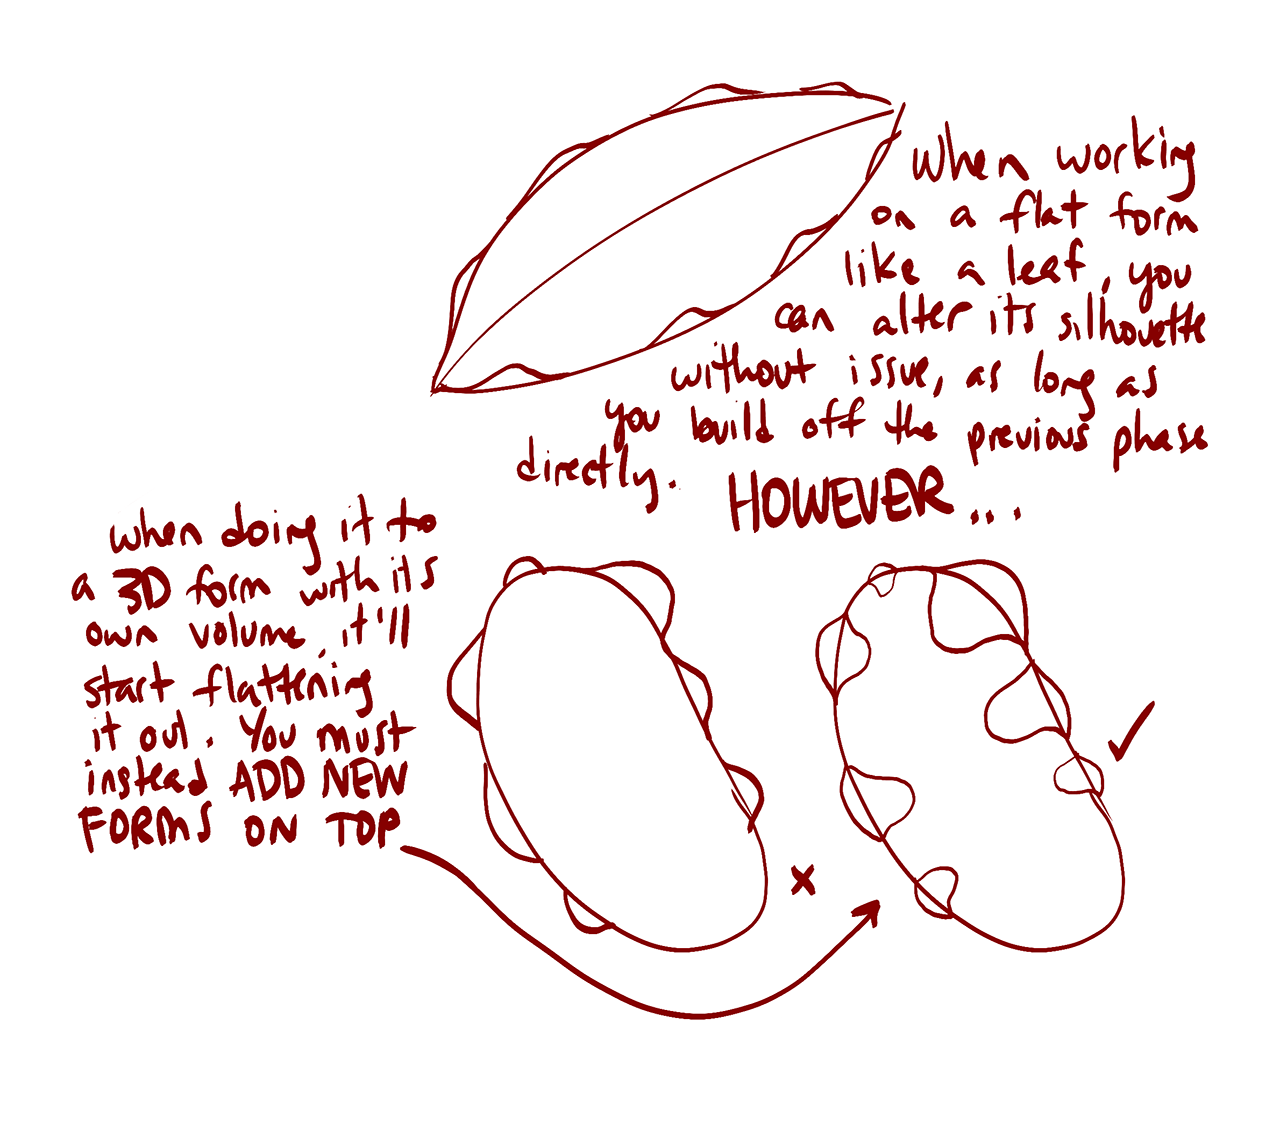 When working
on a flat form
like a leaf, you
can alter its silhouette
without issue, as long as
you build off the previous phase
directly.
HOWEVER...
when doing it to
a 3D form with its
own volume, it'll
start flattening
it out. You must
instead ADD NEW
FORMS ON TOP